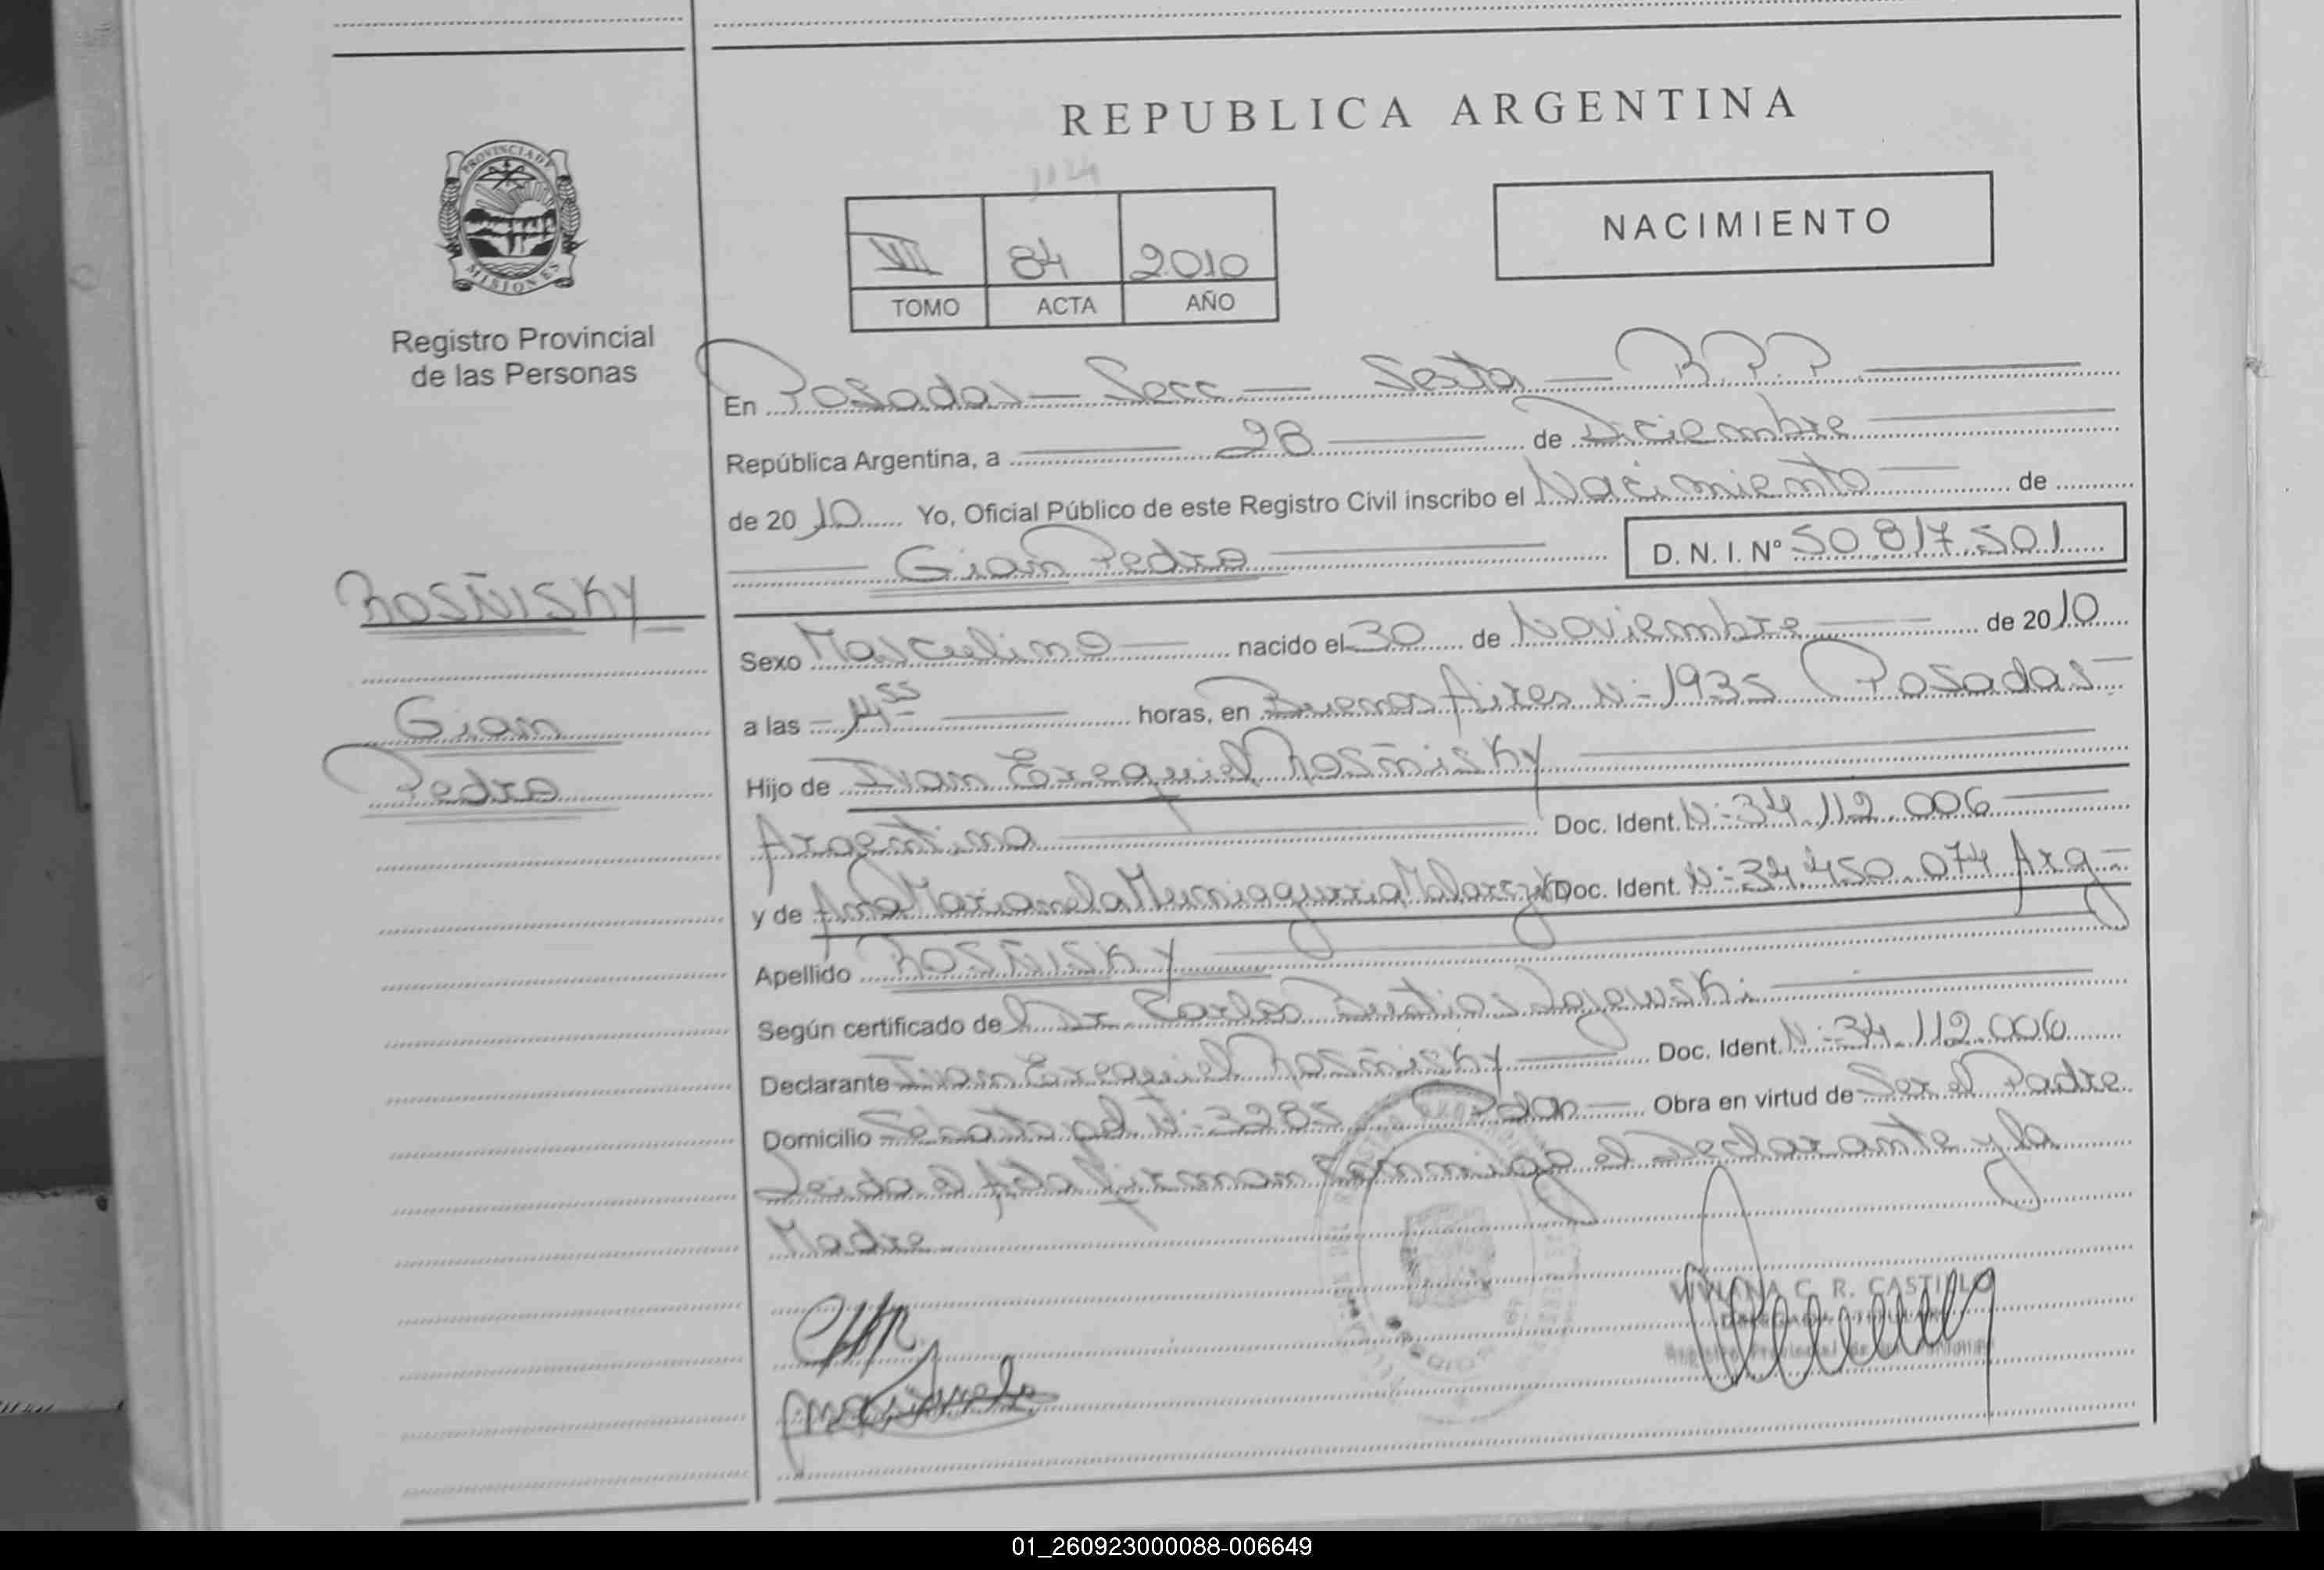 REPUBLICA ARGENTINA
1124
PROVINCIA DE
MISIONES
Registro Provincial
de las Personas
VII 84 2010
TOMO ACTA AÑO
NACIMIENTO
En Posadas — Secc — Sexta — R.P.P.
República Argentina, a 28 de Diciembre
de 2010 Yo, Oficial Público de este Registro Civil inscribo el Nacimiento de
Gian Pedro D. N. I. Nº 50.817.501
ROSÑISKY
Gian
Pedro
Sexo Masculino nacido el 30 de Noviembre de 2010
a las horas, en Buenos Aires N: 1935 Posadas
Hijo de Ivan Ezequiel Rosñisky
Argentino Doc. Ident. N: 34.112.006
y de Ana Marianela Doc. Ident. N: 34.450.074 Arg
Apellido ROSÑISKY
Según certificado del Dr. Carlos
Declarante Ivan Ezequiel Rosñisky Doc. Ident. N: 34.112.006
Domicilio Pdas Obra en virtud de Ser el Padre
Leida el Acta firman conmigo el Declarante y la
Madre
VIVIANA C. R. CASTILLO
Registro Provincial de las Personas
01_260923000088-006649